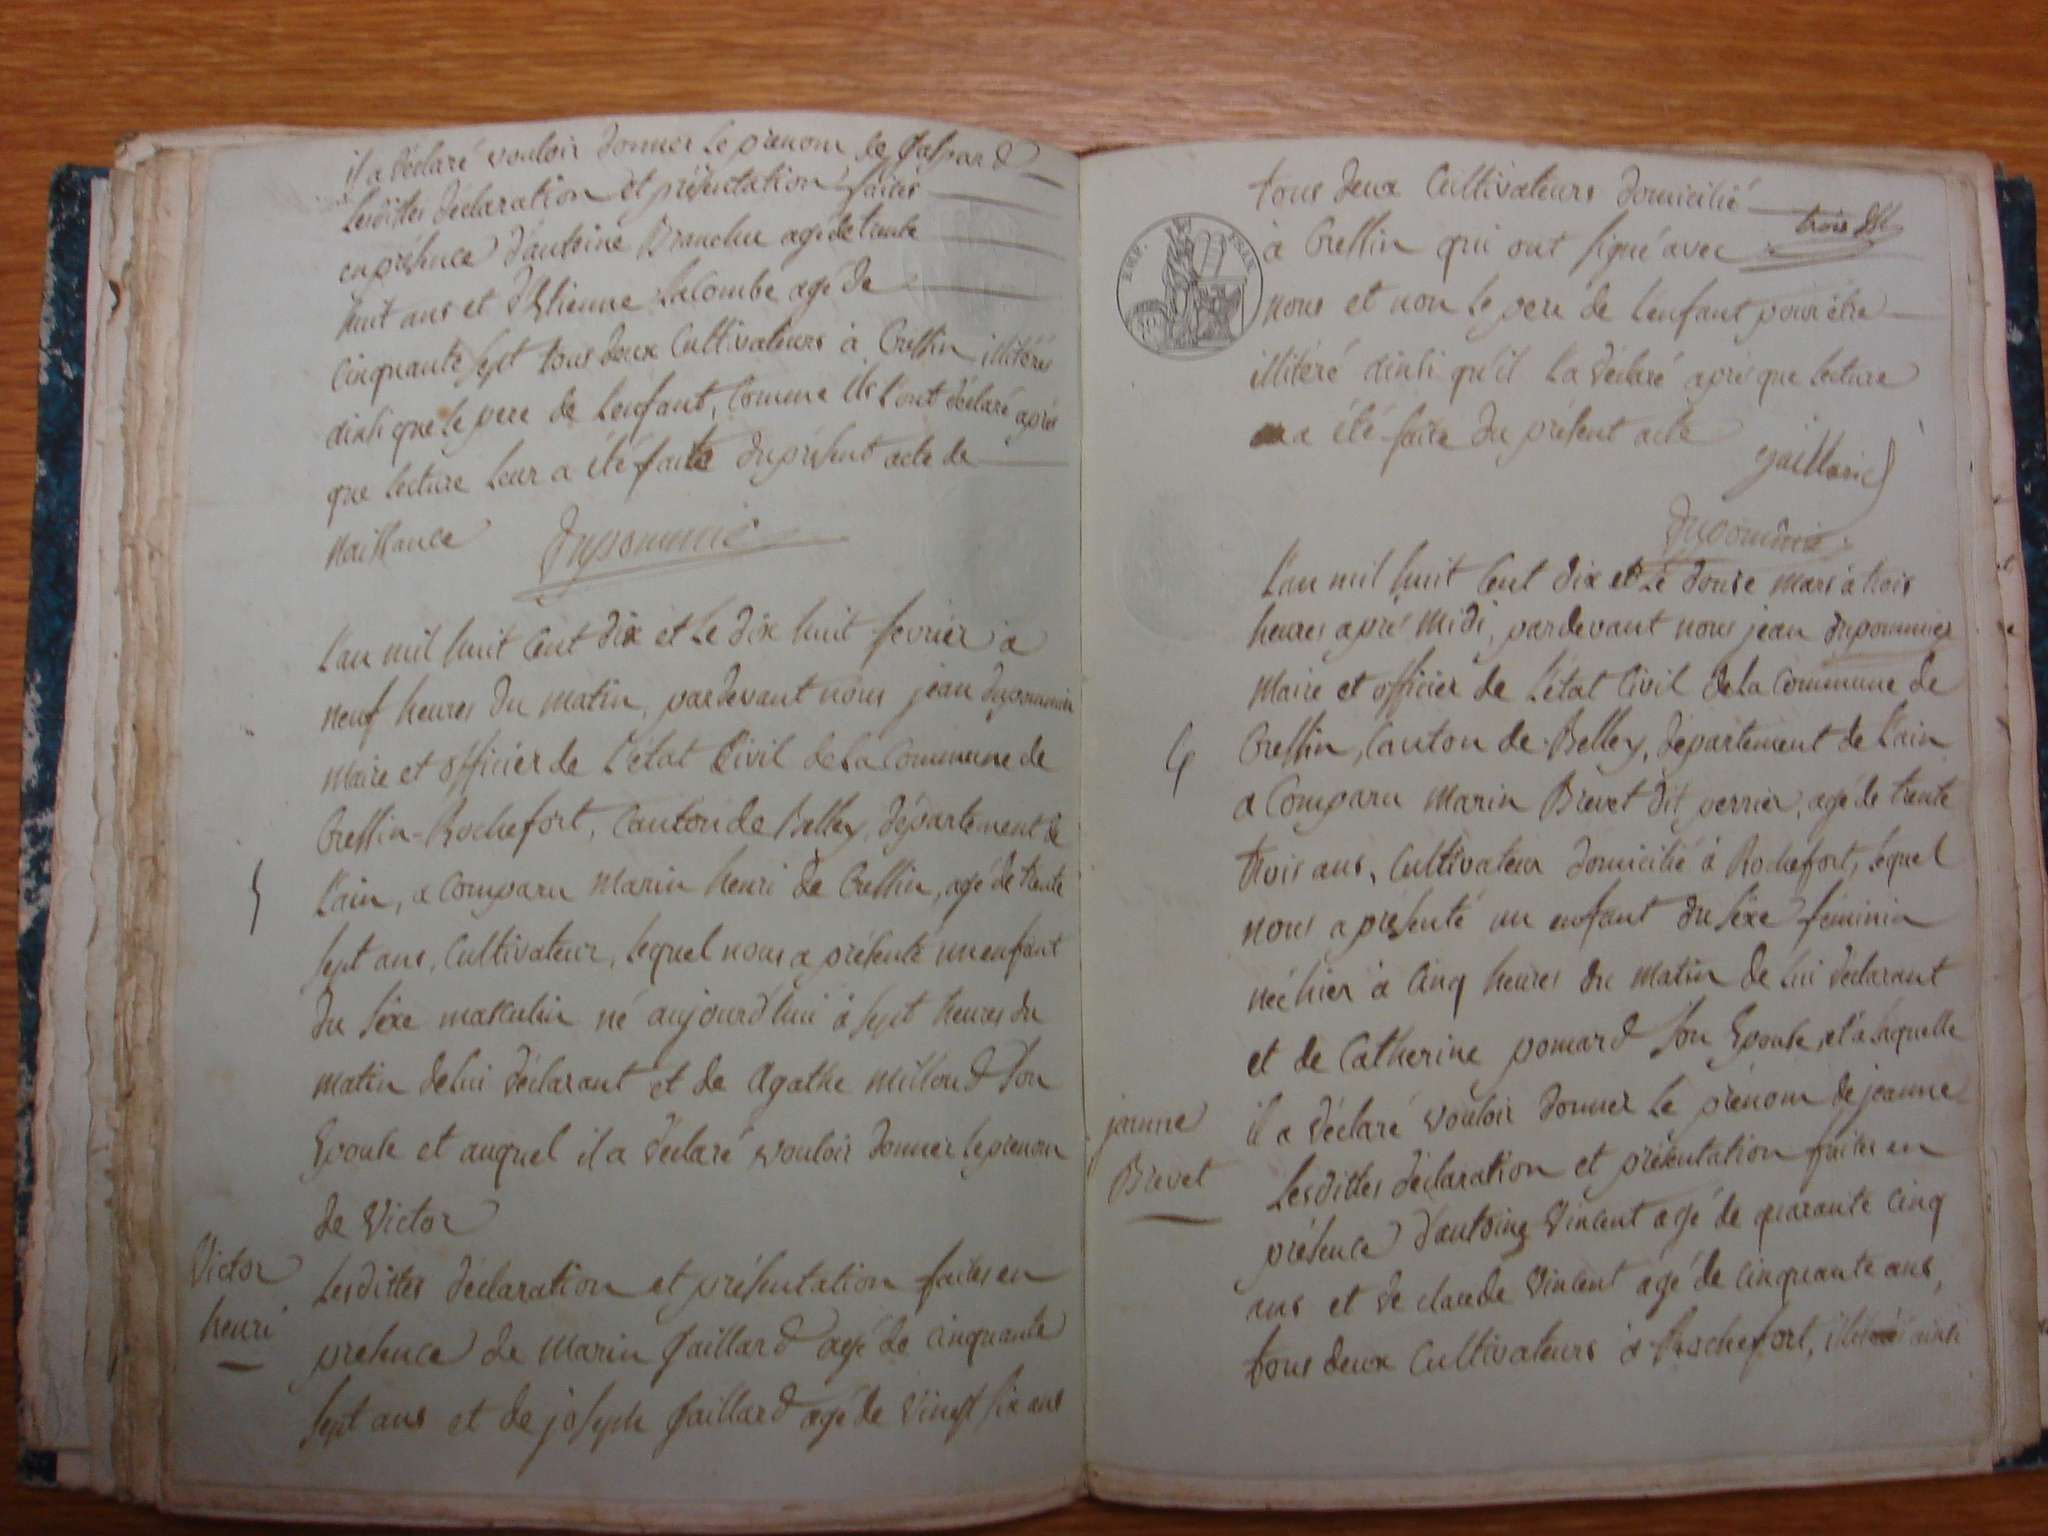 il a déclaré vouloir donner le prenom de Gaspard
lesdittes déclaration et présentation faites
en présence d'antoine Branchu agé de trente
huit ans et d'Etienne Lacombe agé de
cinquante sept tous deux Cultivateurs à Cressin illitérés
ainsi que le pere de l'enfant, Comme ils l'ont déclaré après
que lecture leur a été faite du présent acte de
naissance Dupommier
L'an mil huit Cent dix et le dix huit fevrier à
neuf heures du matin, pardevant nous jean dupommier
Maire et officier de l'état Civil de la Commune de
Cressin-Rochefort, Canton de Belley, département de
l'ain, a Comparu Marin henri de Cressin, agé de trente
sept ans, Cultivateur, lequel nous a présenté un enfant
du sexe masculin né aujourd'hui à sept heures du
matin de lui déclarant et de Agathe Milloud son
Epouse et auquel il a déclaré vouloir donner le prenom
de Victor
Victor
henri
Lesdittes déclaration et présentation faites en
présence de Marin Gaillard agé de cinquante
sept ans et de joseph Gaillard agé de vingt six ans
tous deux Cultivateurs domicilié
à Cressin qui ont signé avec
nous et non le pere de l'enfant pour être
illitéré ainsi qu'il l'a déclaré après que lecture
a été faite du présent acte
Gaillard
Dupommier
EMP. FRAN
L'an mil huit Cent dix et le douze mars à trois
heures après midi, pardevant nous jean dupommier
Maire et officier de l'état Civil de la Commune de
Cressin, Canton de Belley, département de l'ain
a Comparu Marin Brevet dit perrier, agé de trente
trois ans, Cultivateur domicilié à Rochefort, lequel
nous a présenté un enfant du sexe féminin
née hier à cinq heures du matin de lui déclarant
et de Catherine pomard son Epouse, et à laquelle
il a déclaré vouloir donner le prénom de jeanne
jeanne
Brevet
Lesdittes déclaration et présentation faites en
présence d'antoine Vincent agé de quarante cinq
ans et de claude Vincent agé de cinquante ans,
tous deux Cultivateurs à Rochefort, illitérés ainsi